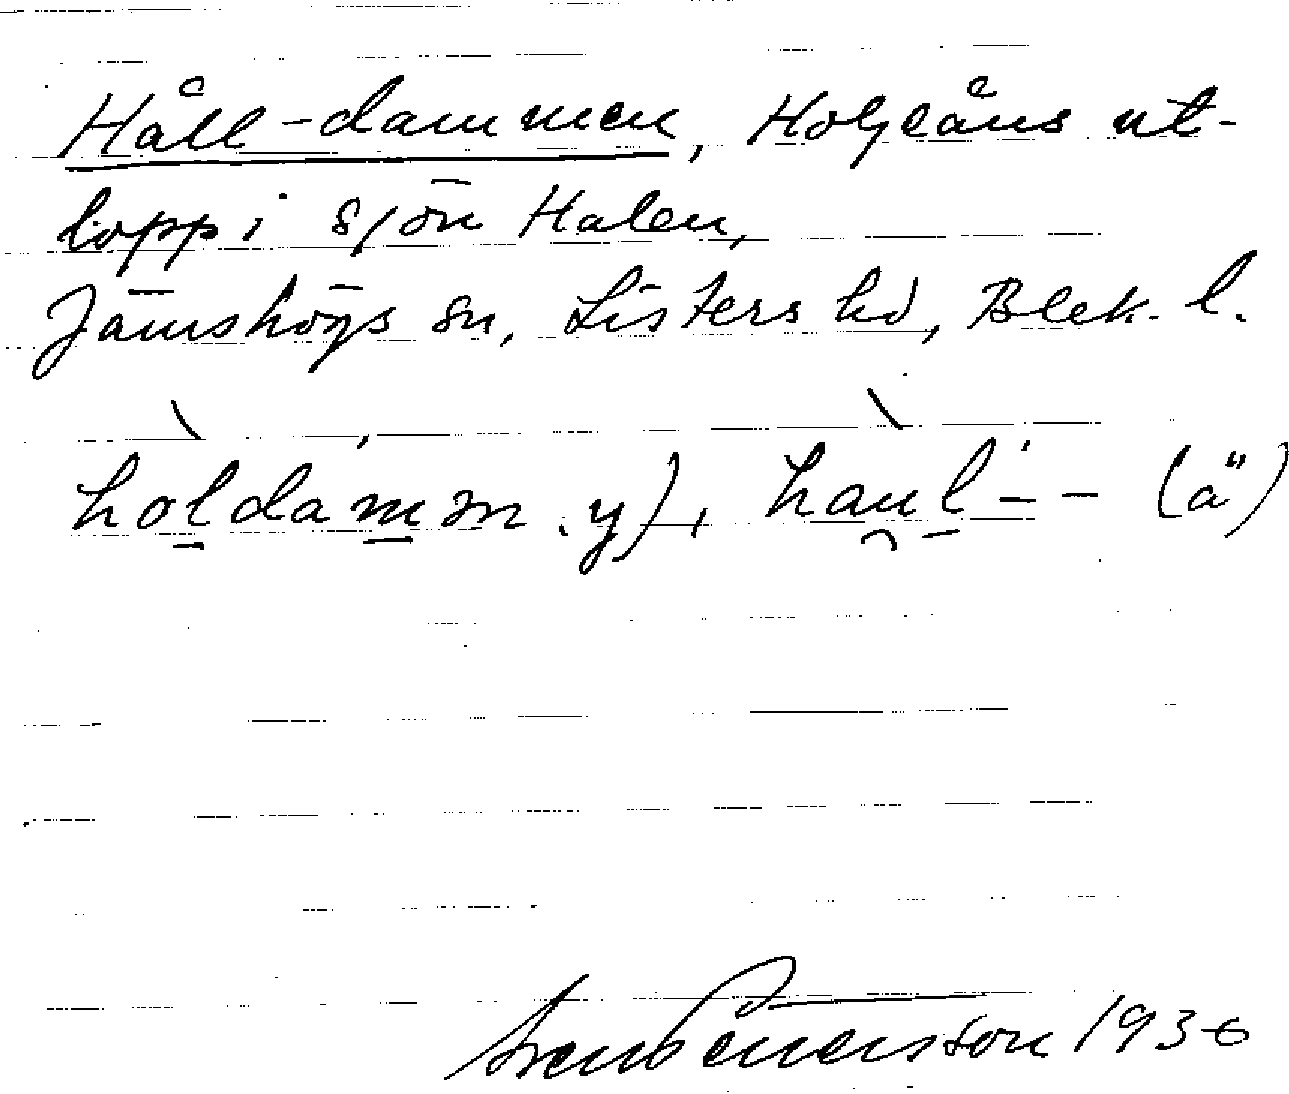 Håll-dammen, Holjeåns ut-
lopp i sjön Halen,
Jämshögs sn, Listers hd, Blek. l.
hòldámən .y), hàul-́- (ä)
1936